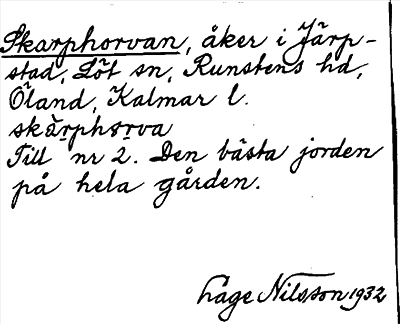 Skarphorvan, åker i Järp-
stad, Löt sn, Runstens hd,
Öland, Kalmar l.
skàrphorva
Till nr 2. Den bästa jorden
på hela gården.
Åge Nilsson 1932